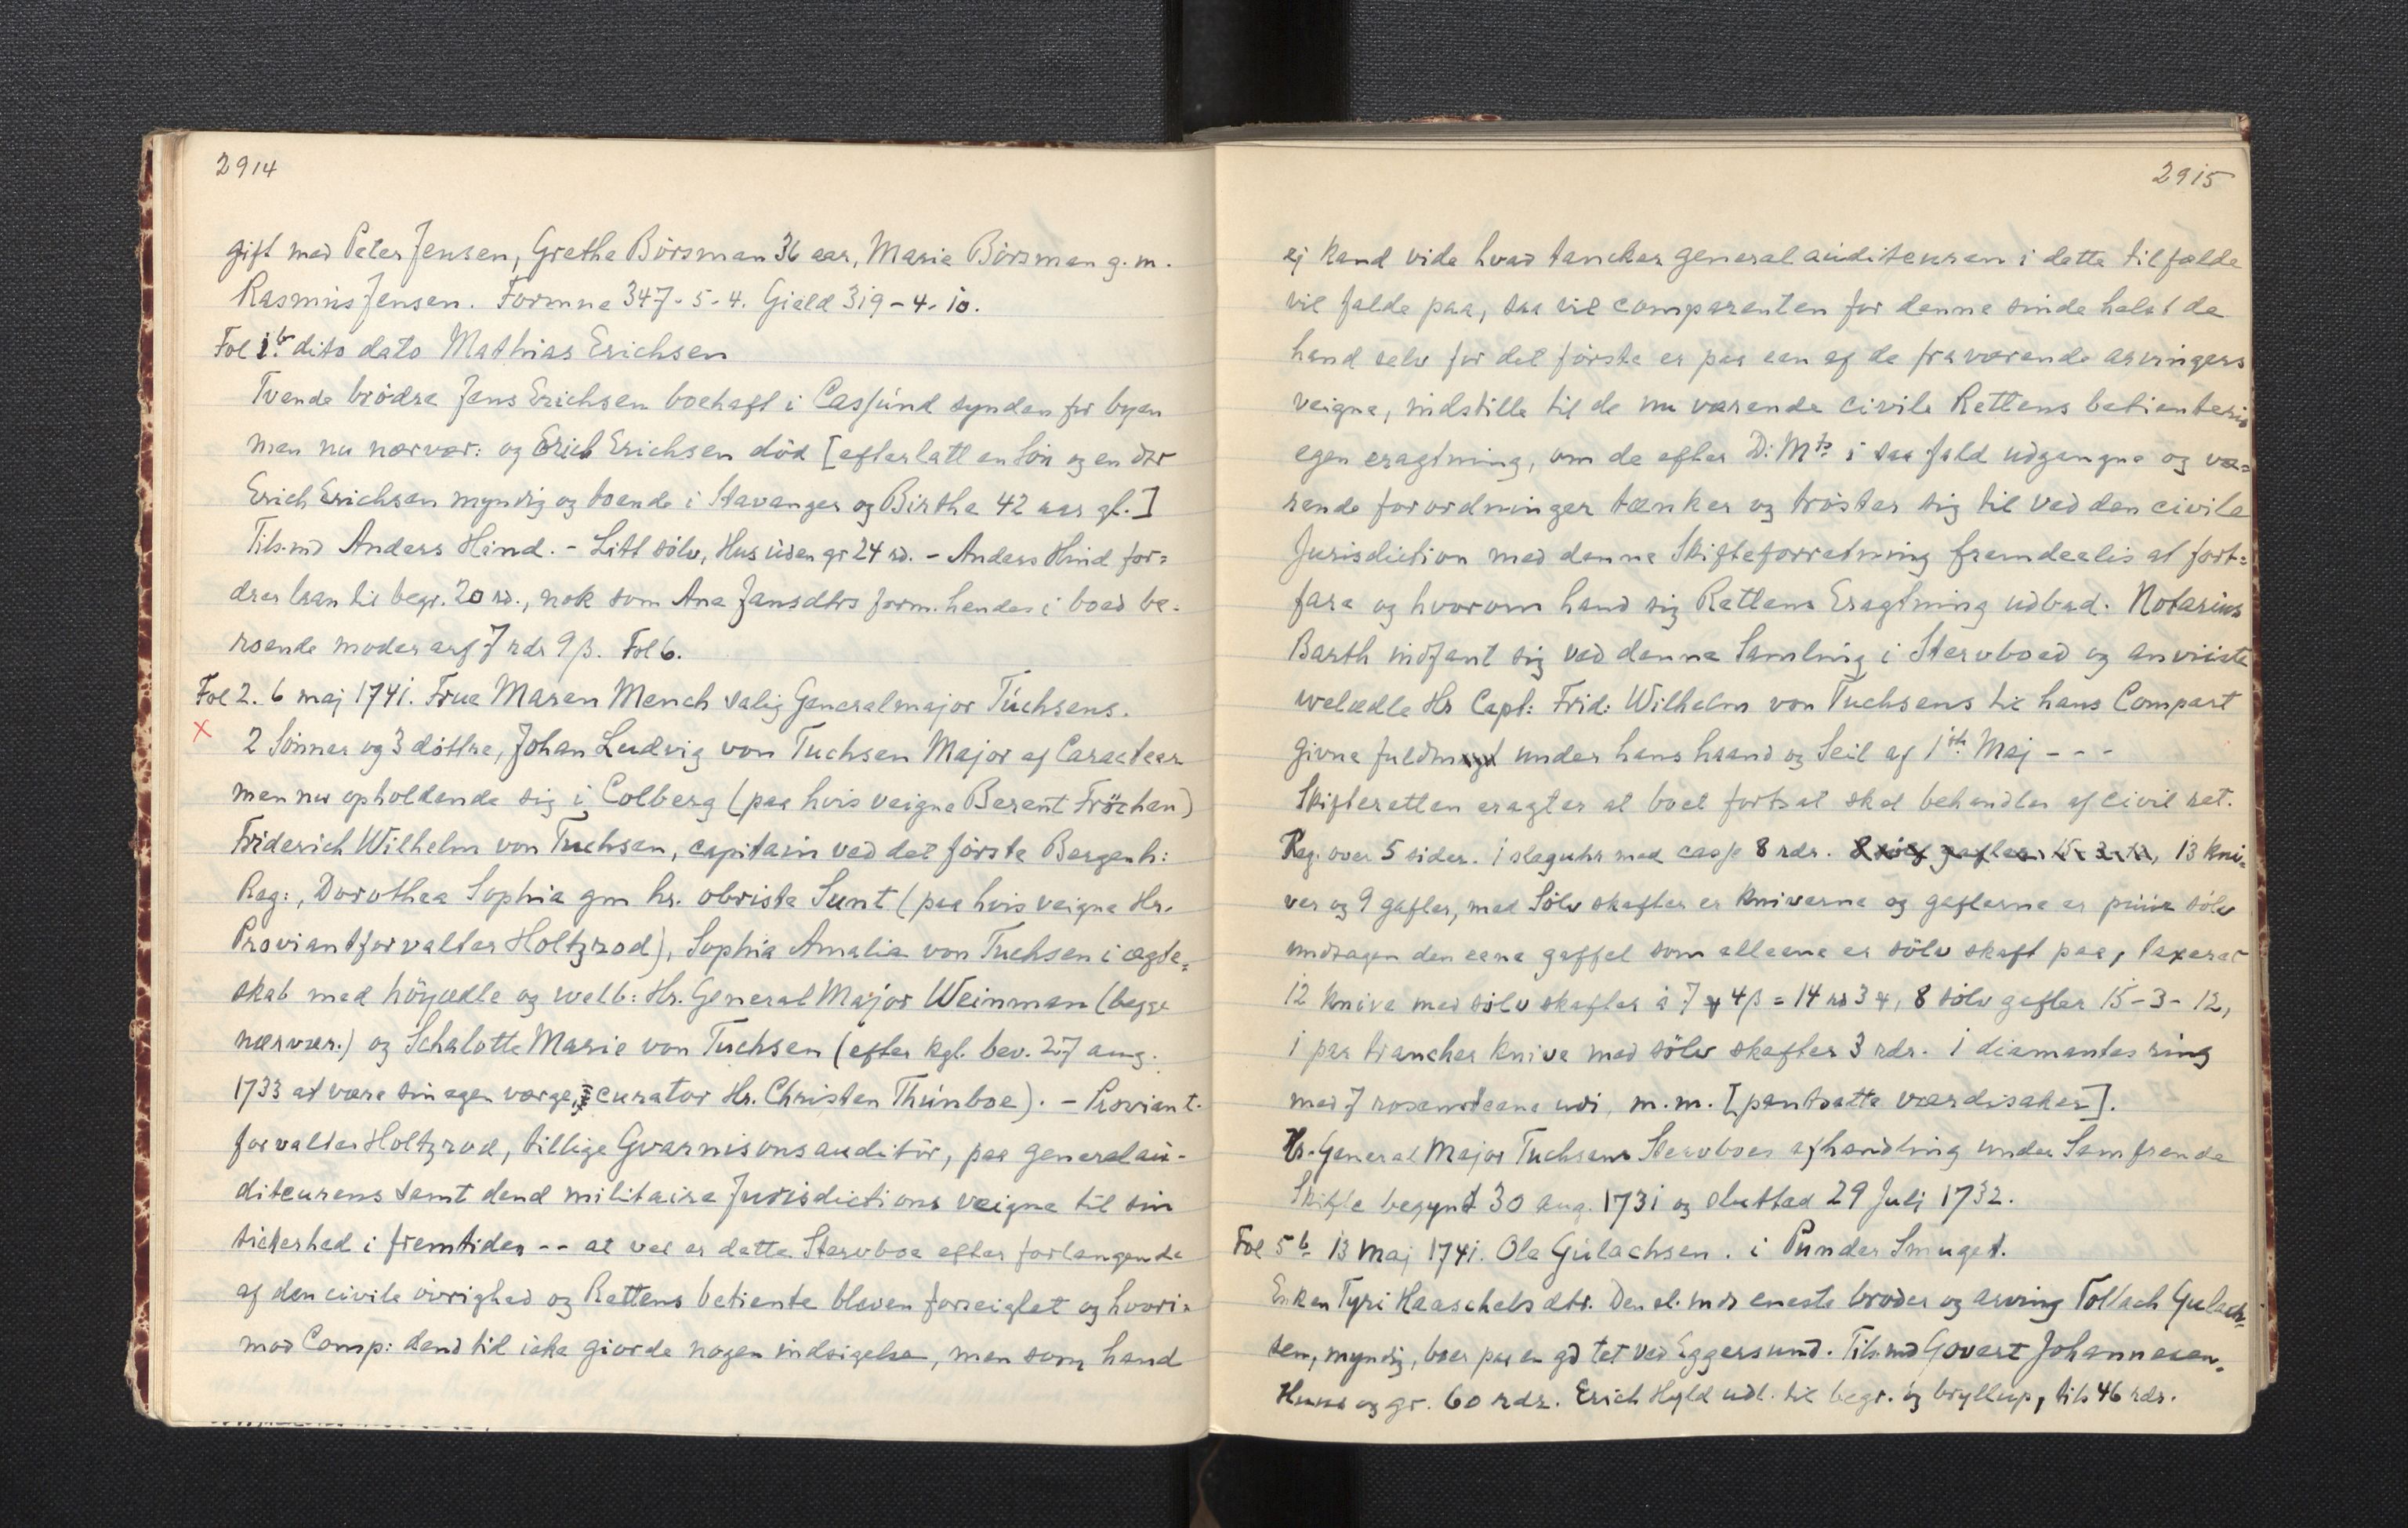 2914
gift med Peter Jensen, Grethe Börsman 36 aar, Marie Börsman g.m.
Rasmus Jensen. Formue 347-5-4. Gield 319-4-10.
Fol 1b. dito dato Mathias Erichsen
Tvende brödre Jens Erichsen boehaft i Casfund synden for byen
men nu nærvær: og Erich Erichsen död [efterlatt en sön og en dtr
Erich Erichsen myndig og boende i Stavanger og Birthe 42 aar gl.]
Tils.md Anders Hind. - Litt sölv, Hus uden gr 24 rd. - Anders Hind for=
drer laan til begr. 20 rd., nok som Ane Jansdtrs form. hendes i boed be-
roende moder arf 7 rdr 9 β. Fol 6.
Fol 2. 6 maj 1741. Frue Maren Mench salig Generalmajor Tuchsens.
x 2 Sönner og 3 döttre, Johan Ludvig von Tuchsen Major af Caracteer
men nu opholdende sig i Colberg (paa hvis veigne Berent Fröchen)
Friderich Wilhelm von Tuchsen, capitain ved det förste Bergenh:
Reg:, Dorothea Sophia gm hr. obriste Sunt (paa hvis veigne Hr.
Proviantforvalter Holtzrod), Sophia Amalia von Tuchsen i ægte=
skab med höyædle og welb: Hr. General Major Weinman (begge
nærvær.) og Schalotte Marie von Tuchsen (efter kgl. bev. 27 aug.
1733 at være sin egen værge, curator Hr. Christen Thunboe). - Proviant-
forvalter Holtzrod, tillige Gvarnisonsauditör, paa generalau-
diteurens samt dend militaire Jurisdictions veigne til sin
sickerhed i fremtiden -- at vel er dette Stervboe efter forlangende
af den civile övrighed og Rettens betiente bleven forseiglet og hvori=
mod Comp: dend tid icke giorde nogen indsigelse, men som hand
2915
ej kand vide hvad tancker generalauditeuren i dette tilfælde
vil falde paa, saa vil comparenten for denne sinde helst da
hand selv for det förste er paa een af de fraværende arvingers
veigne, indstille til de nu værende civile Rettens betienteris
egen eragtning, om de efter D: Mts. i saa fald udgangne og væ=
rende forordninger tænker og tröster sig til ved den civile
Jurisdiction med denne Skifteforretning fremdeelis at fort=
fare og hvorom hand sig Rettens Eragtning udbad. Notarius
Barth indfant sig ved denne Samling i Stervboed og anviiste
welædle Hr Capt: Frid: Wilhelm von Tuchsens til hans Compart
givne fuldmagt under hans haand og Seil af 1ste Maj - - -
Skifteretten eragter at boet fortsat skal behandles af civil ret.
Reg. over 5 sider. 1 slaguhr med casse 8 rdr. 8 sölv gafler 15-3-12, 13 kni-
ver og 9 gafler, med Sölv skafter er kniverne og gaflerne er puur sölv
undtagen den eene gaffel som alleene er sölv skaft paa, taxeret
12 knive med sölv skafter à 7 ort 4β = 14 rd 3 ort, 8 sölv gafler 15-3-12,
1 par trancher knive med sölv skafter 3 rdr. 1 diamantes ring
med 7 rosensteene udi, m.m. [pantsatte værdisaker].
Hr. General Major Tuchsens Stervboes afhandling under Samfrende
Skifte begynt 30 aug. 1731 og slutted 29 Julj 1732.
Fol 5b. 13 maj 1741. Ole Gulachsen. i Punder Smuget.
Enken Tyri Haaschelsdtr. Den sl. mds eneste broder og arving Tollach Gulach-
sen, myndig, boer paa en gd tet ved Eggersund. Tils.md Govert Johannesen.
Huus og gr. 60 rdr. Erich Hyld udl. til begr. og bryllup, tils 46 rdr.